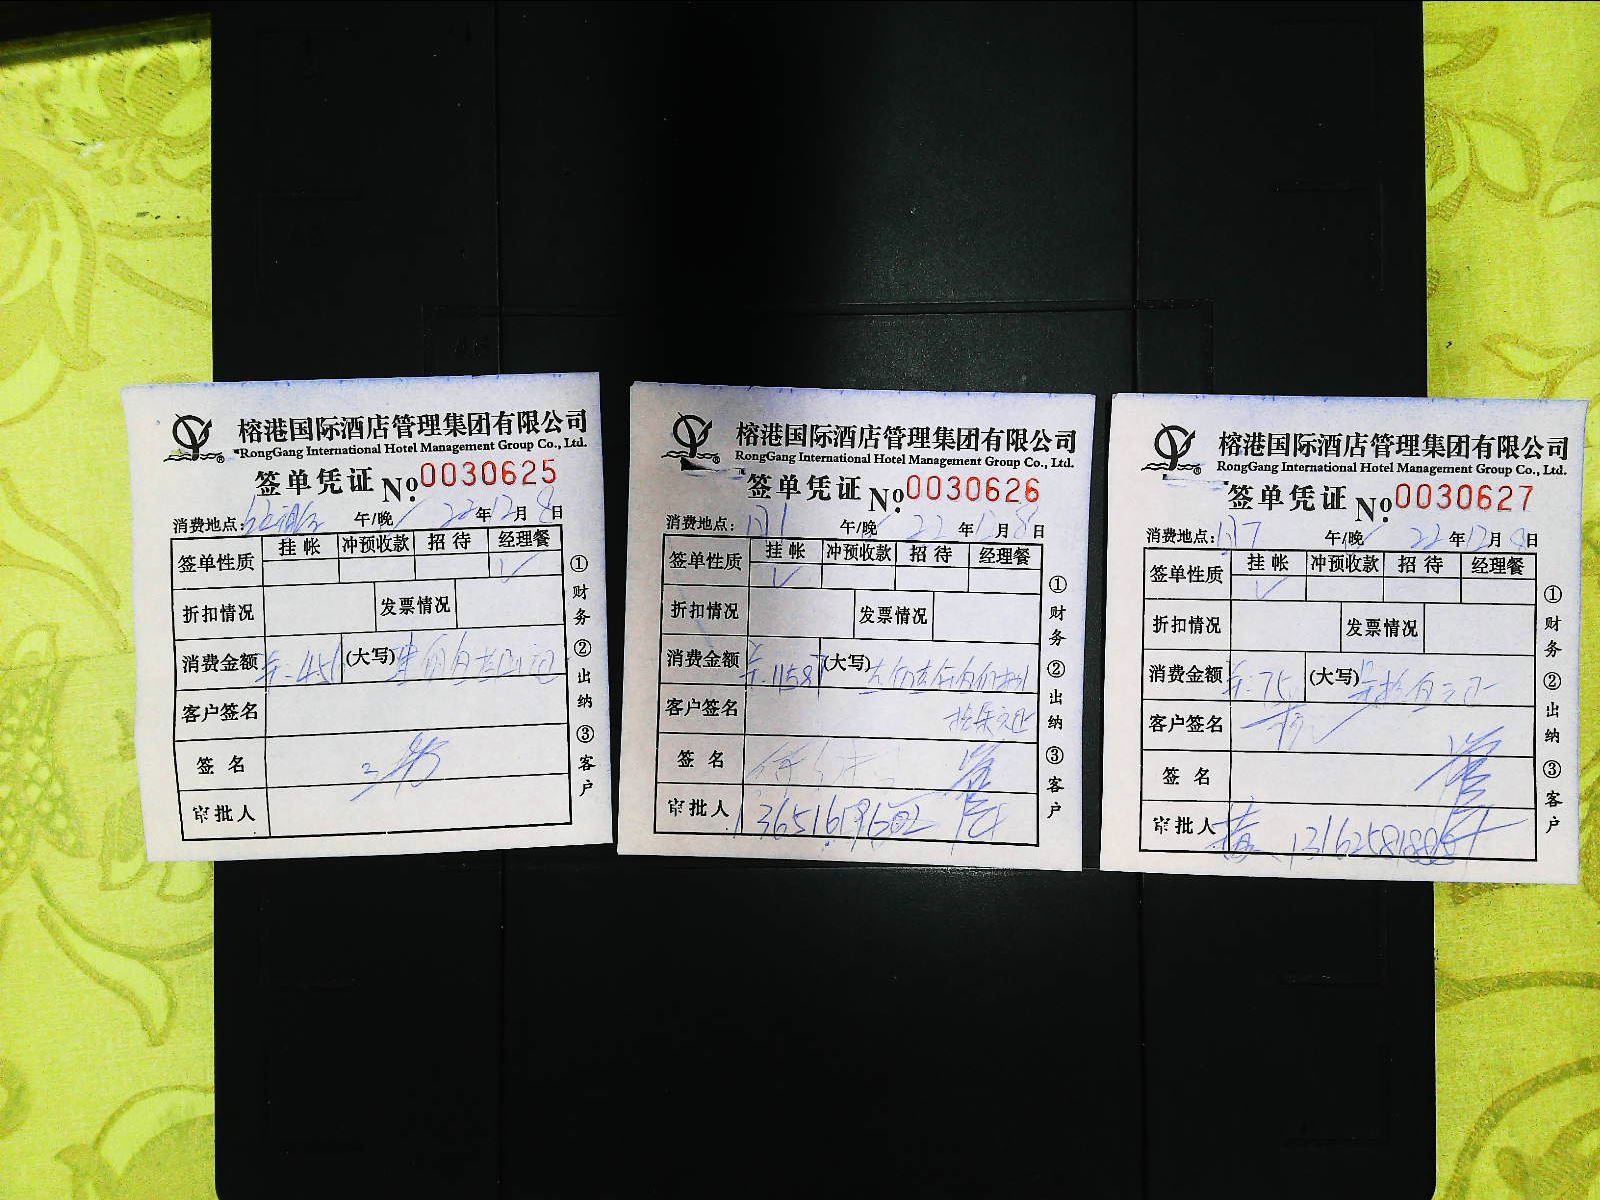 榕港国际酒店管理集团有限公司
RongGang International Hotel Management Group Co., Ltd.
签单凭证 No. 0030625
消费地点: 午/晚 22年12月8日
签单性质 挂帐 冲预收款 招待 经理餐
✓
折扣情况 发票情况
消费金额 451 (大写)
客户签名
签名
审批人
①财务 ②出纳 ③客户
榕港国际酒店管理集团有限公司
RongGang International Hotel Management Group Co., Ltd.
签单凭证 No. 0030626
消费地点: 午/晚 22年12月8日
签单性质 挂帐 冲预收款 招待 经理餐
✓
折扣情况 发票情况
消费金额 (大写)
客户签名
签名
审批人
①财务 ②出纳 ③客户
榕港国际酒店管理集团有限公司
RongGang International Hotel Management Group Co., Ltd.
签单凭证 No. 0030627
消费地点: 午/晚 22年12月8日
签单性质 挂帐 冲预收款 招待 经理餐
✓
折扣情况 发票情况
消费金额 (大写)
客户签名
签名
审批人
①财务 ②出纳 ③客户